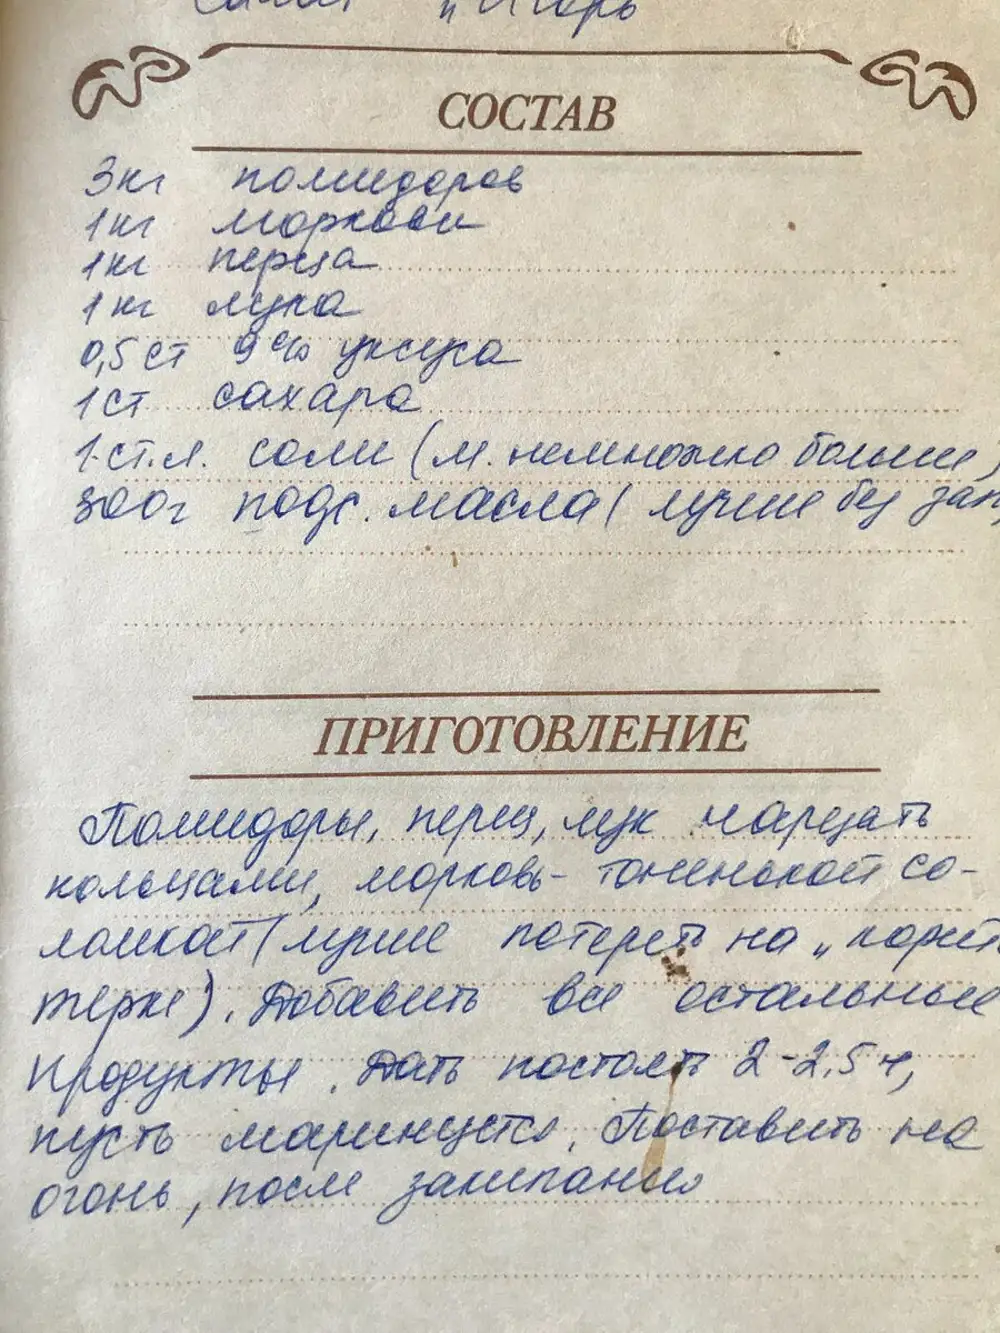 "Игорь
СОСТАВ
3кг помидоров
1кг моркови
1кг перца
1кг лука
0,5 ст 9% уксуса
1ст сахара
1.ст.л. соли (м. немножко больше)
300г подс. масла (лучше без зап
ПРИГОТОВЛЕНИЕ
Помидоры, перец, лук нарезать
кольцами, морковь - тоненькой со-
ломкой (лучше потереть на „корейс
терке). Добавить все остальные
продукты. Дать постоять 2-2,5 ч,
пусть маринуется. Поставить на
огонь, после закипания